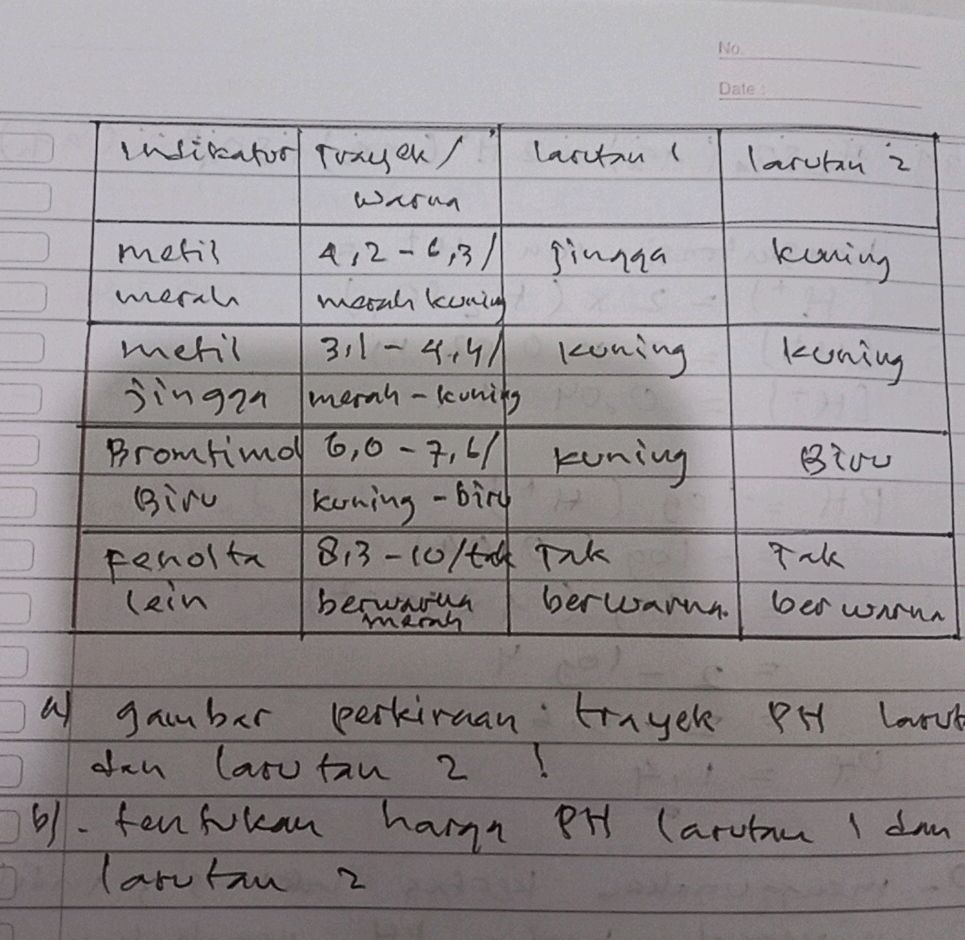 No.
Date :
Indikator trayek / larutan 1 larutan 2
warna
metil 4,2 - 6,3 / jingga kuning
merah merah kuning
metil 3,1 - 4,4 / kuning kuning
jingga merah - kuning
Bromtimol 6,0 - 7,6 / kuning Biru
Biru kuning - biru
Fenolta 8,3 - 10 / tak Tak Tak
lein berwarna berwarna. berwarna
merah
a) gambar perkiraan trayek PH larut
dan larutan 2 !
b). tentukan harga PH larutan 1 dan
larutan 2